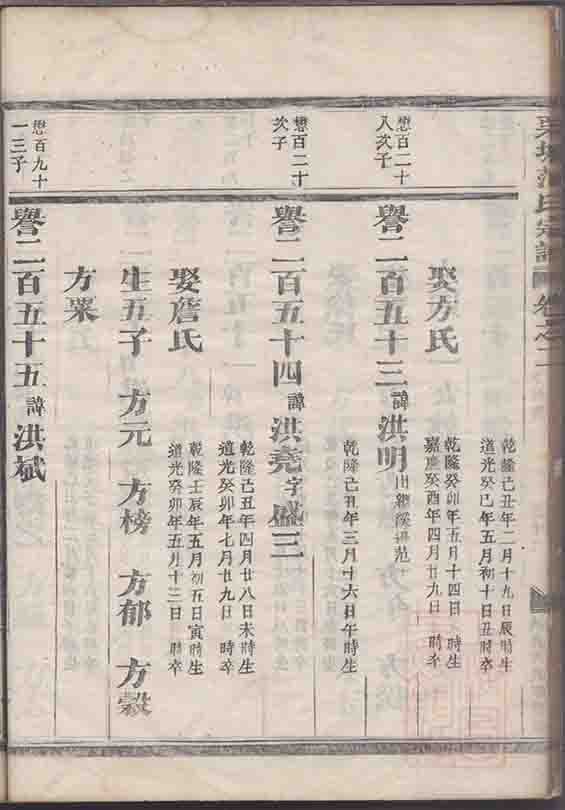 范氏宗譜 卷之二
乾隆己丑年二月十九日辰時生
道光癸巳年五月初十日丑時卒
娶方氏
乾隆癸卯年五月十四日 時生
嘉慶癸酉年四月廿九日 時卒
懋百二十
八次子
譽二百五十三 諱洪明 出繼溪邊范
乾隆己丑年三月十六日午時生
懋百二十
次子
譽二百五十四 諱洪堯 字盛三
乾隆己丑年四月廿八日未時生
道光癸卯年七月廿九日 時卒
娶詹氏
乾隆壬辰年五月初五日寅時生
道光癸卯年五月十三日 時卒
生五子 方元 方榜 方郁 方穀
方粟
懋百九十
一三子
譽二百五十五 諱洪斌